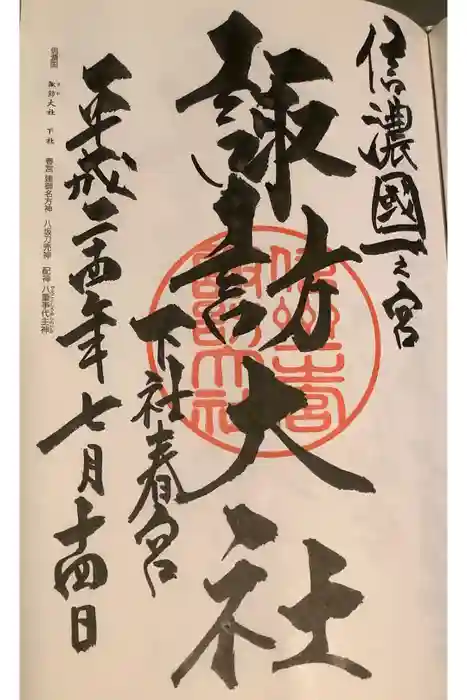 信濃國一之宮
諏訪大社
下社春宮
平成二十四年七月十四日
信濃国
諏訪大社 下社
春宮 建御名方神 八坂刀売神 配神 八重事代主神